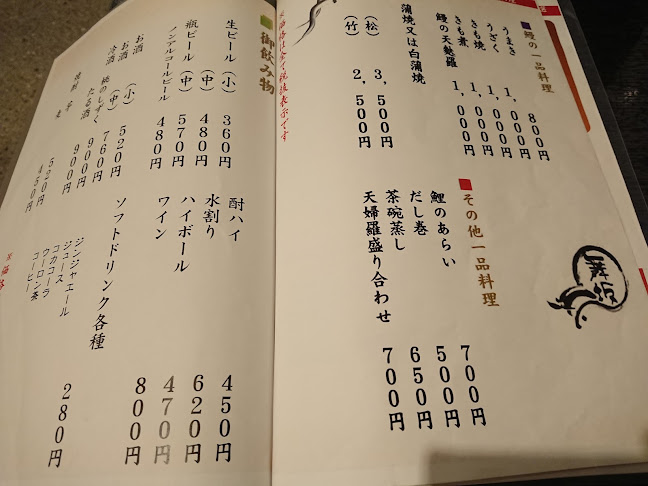 鰻の一品料理
うまき 800円
うざく 1,000円
きも焼 1,000円
きも煮 1,000円
鰻の天麩羅 1,000円
蒲焼又は白蒲焼
（松） 3,500円
（竹） 2,500円
その他一品料理
鯉のあらい 700円
だし巻 500円
茶碗蒸し 650円
天婦羅盛り合わせ 700円
※価格は全て税抜表示です
御飲み物
生ビール（小） 360円
（中） 480円
瓶ビール（中） 570円
ノンアルコールビール 480円
お酒（小） 520円
お酒（中） 760円
冷酒 桃のしずく 900円
たる酒 900円
焼酎 芋 520円
麦 450円
酎ハイ 450円
水割り 620円
ハイボール 470円
ワイン 800円
ソフトドリンク各種 280円
ジンジャエール
ジュース
コカコーラ
ウーロン茶
コーヒー